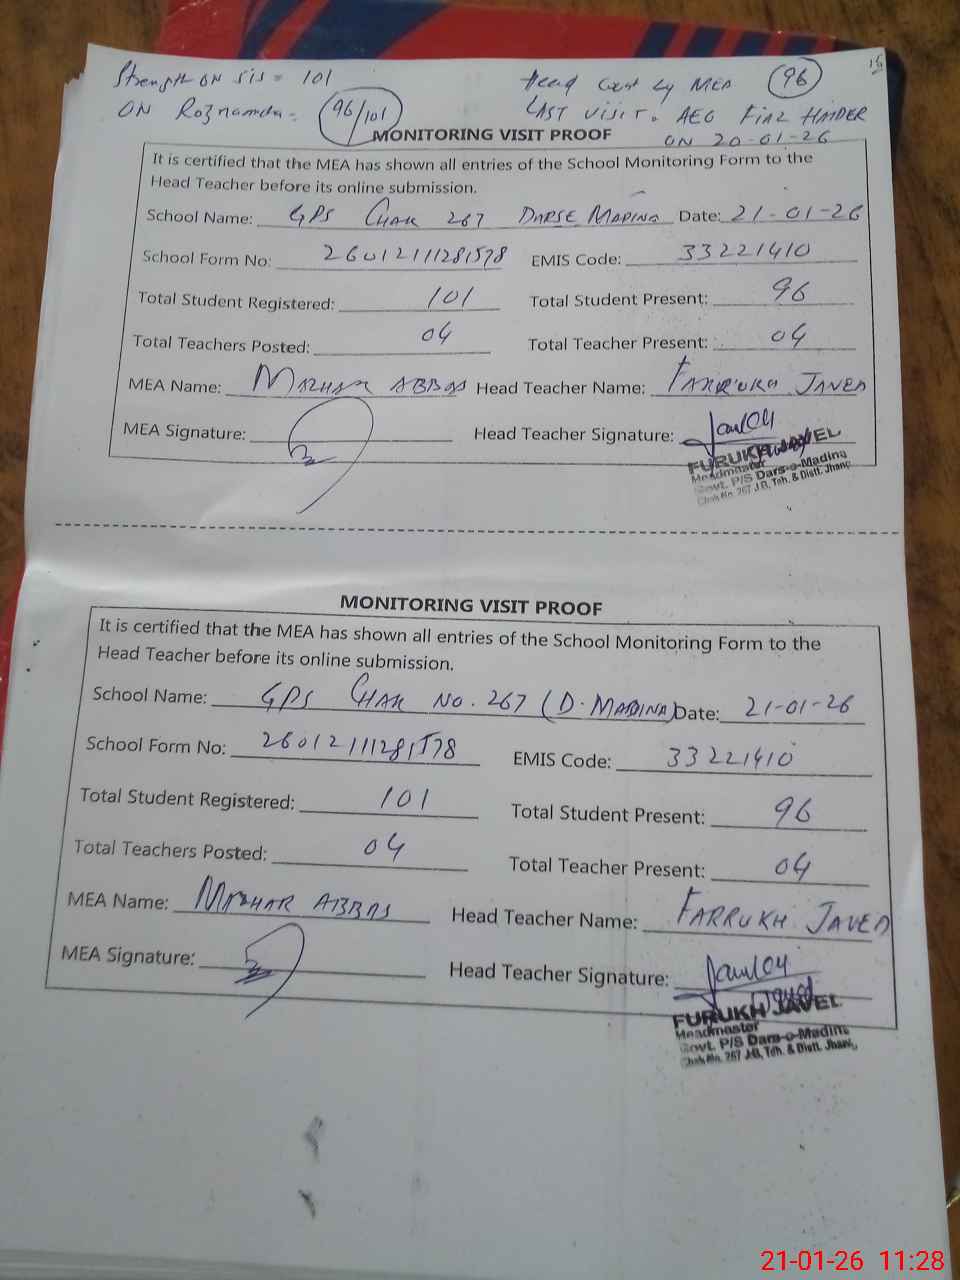 Strength ON SIS = 101
Head Count by MEA 96
16
ON Roznamcha = 96/101
LAST VISIT. AEO FIAZ HAIDER
ON 20-01-26
MONITORING VISIT PROOF
It is certified that the MEA has shown all entries of the School Monitoring Form to the
Head Teacher before its online submission.
School Name: GPS CHAK 267 DARSE MADINA Date: 21-01-26
School Form No: 26012111281578 EMIS Code: 33221410
Total Student Registered: 101 Total Student Present: 96
Total Teachers Posted: 04 Total Teacher Present: 04
MEA Name: MAZHAR ABBAS Head Teacher Name: FARRUKH JAVED
MEA Signature: Head Teacher Signature:
FURUKH JAVEL
Headmaster
Govt. P/S Dars-o-Madina
Chak No. 267 J.B, Teh. & Distt. Jhang
MONITORING VISIT PROOF
It is certified that the MEA has shown all entries of the School Monitoring Form to the
Head Teacher before its online submission.
School Name: GPS CHAK NO. 267 (D. MADINA) Date: 21-01-26
School Form No: 26012111281578 EMIS Code: 33221410
Total Student Registered: 101 Total Student Present: 96
Total Teachers Posted: 04 Total Teacher Present: 04
MEA Name: MAZHAR ABBAS Head Teacher Name: FARRUKH JAVED
MEA Signature: Head Teacher Signature:
FURUKH JAVEL
Headmaster
Govt. P/S Dars-o-Madina
Chak No. 267 J.B, Teh. & Distt. Jhang
21-01-26 11:28